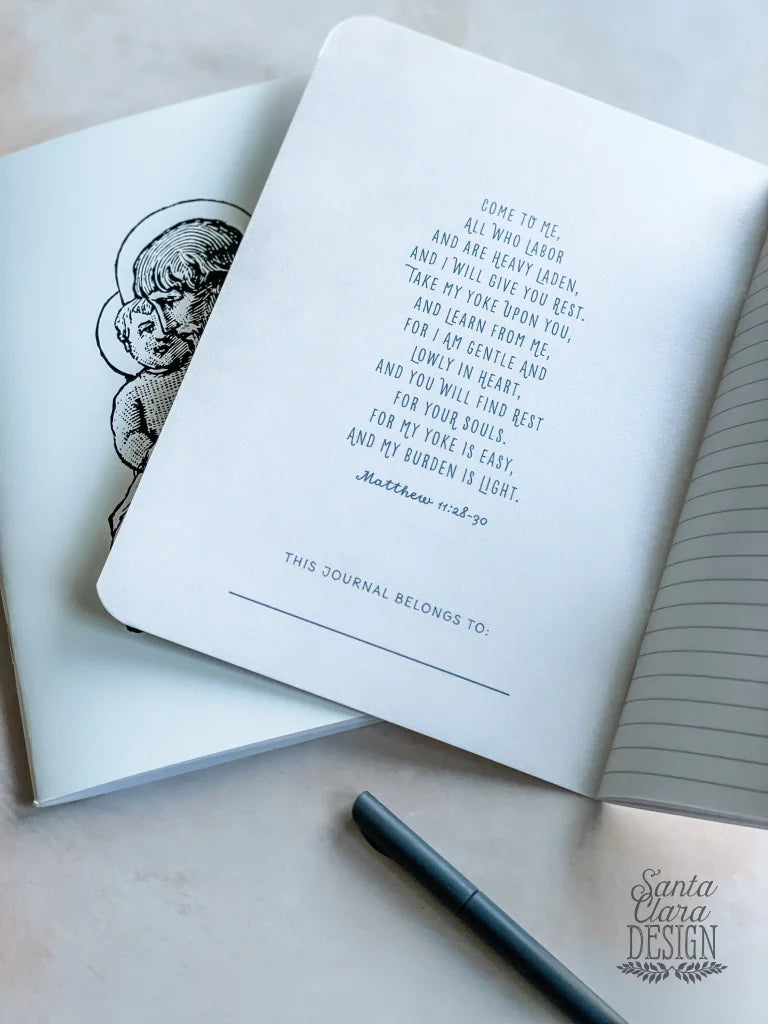 COME TO ME,
ALL WHO LABOR
AND ARE HEAVY LADEN,
AND I WILL GIVE YOU REST.
TAKE MY YOKE UPON YOU,
AND LEARN FROM ME,
FOR I AM GENTLE AND
LOWLY IN HEART,
AND YOU WILL FIND REST
FOR YOUR SOULS.
FOR MY YOKE IS EASY,
AND MY BURDEN IS LIGHT.
Matthew 11:28-30
THIS JOURNAL BELONGS TO:
Santa
Clara
DESIGN